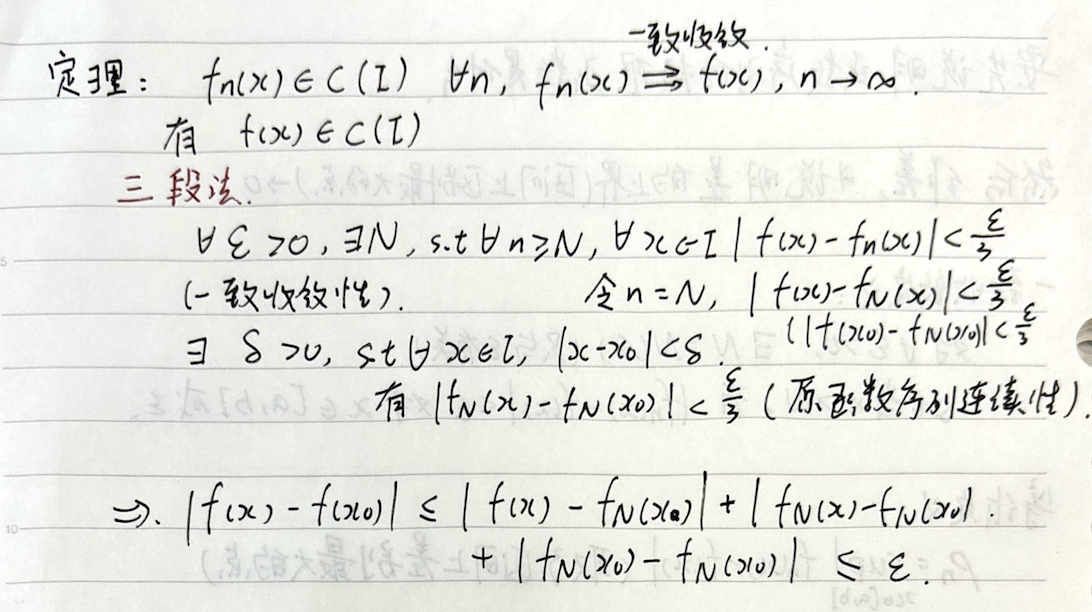 一致收敛.
定理: fn(x)∈C(I) ∀n, fn(x)⇉f(x), n→∞.
有 f(x)∈C(I)
三段法.
∀ε>0, ∃N, s.t ∀n≥N, ∀x∈I |f(x)-fn(x)|<ε/3
(一致收敛性). 令n=N, |f(x)-fN(x)|<ε/3
(|f(x0)-fN(x0)|<ε/3
∃ δ>0, s.t ∀x∈I, |x-x0|<δ.
有 |fN(x)-fN(x0)|<ε/3 (原函数序列连续性).
⇒. |f(x)-f(x0)| ≤ |f(x)-fN(x)|+|fN(x)-fN(x0)|.
+ |fN(x0)-fN(x0)| ≤ ε.